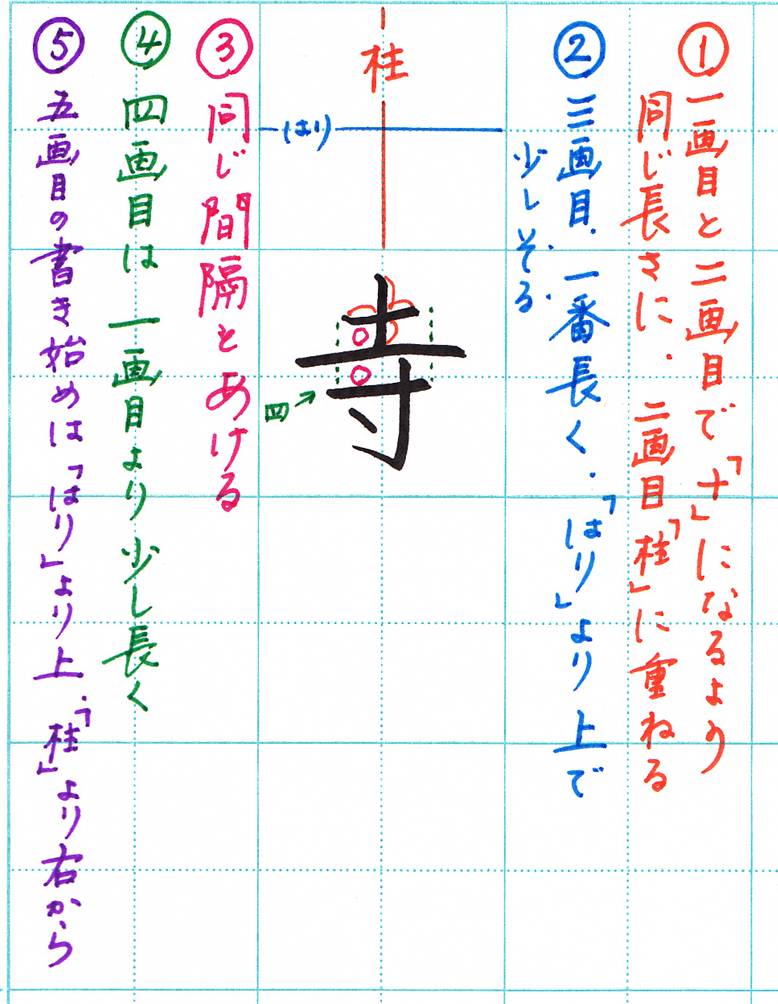 ①一画目と二画目で「十」になるより
同じ長さに. 二画目「柱」に重ねる
②三画目.一番長く.「はり」より上で
少しそる.
柱
はり
寺
四
③同じ間隔とあける
④四画目は一画目より少し長く
⑤五画目の書き始めは「はり」より上.「柱」より右から